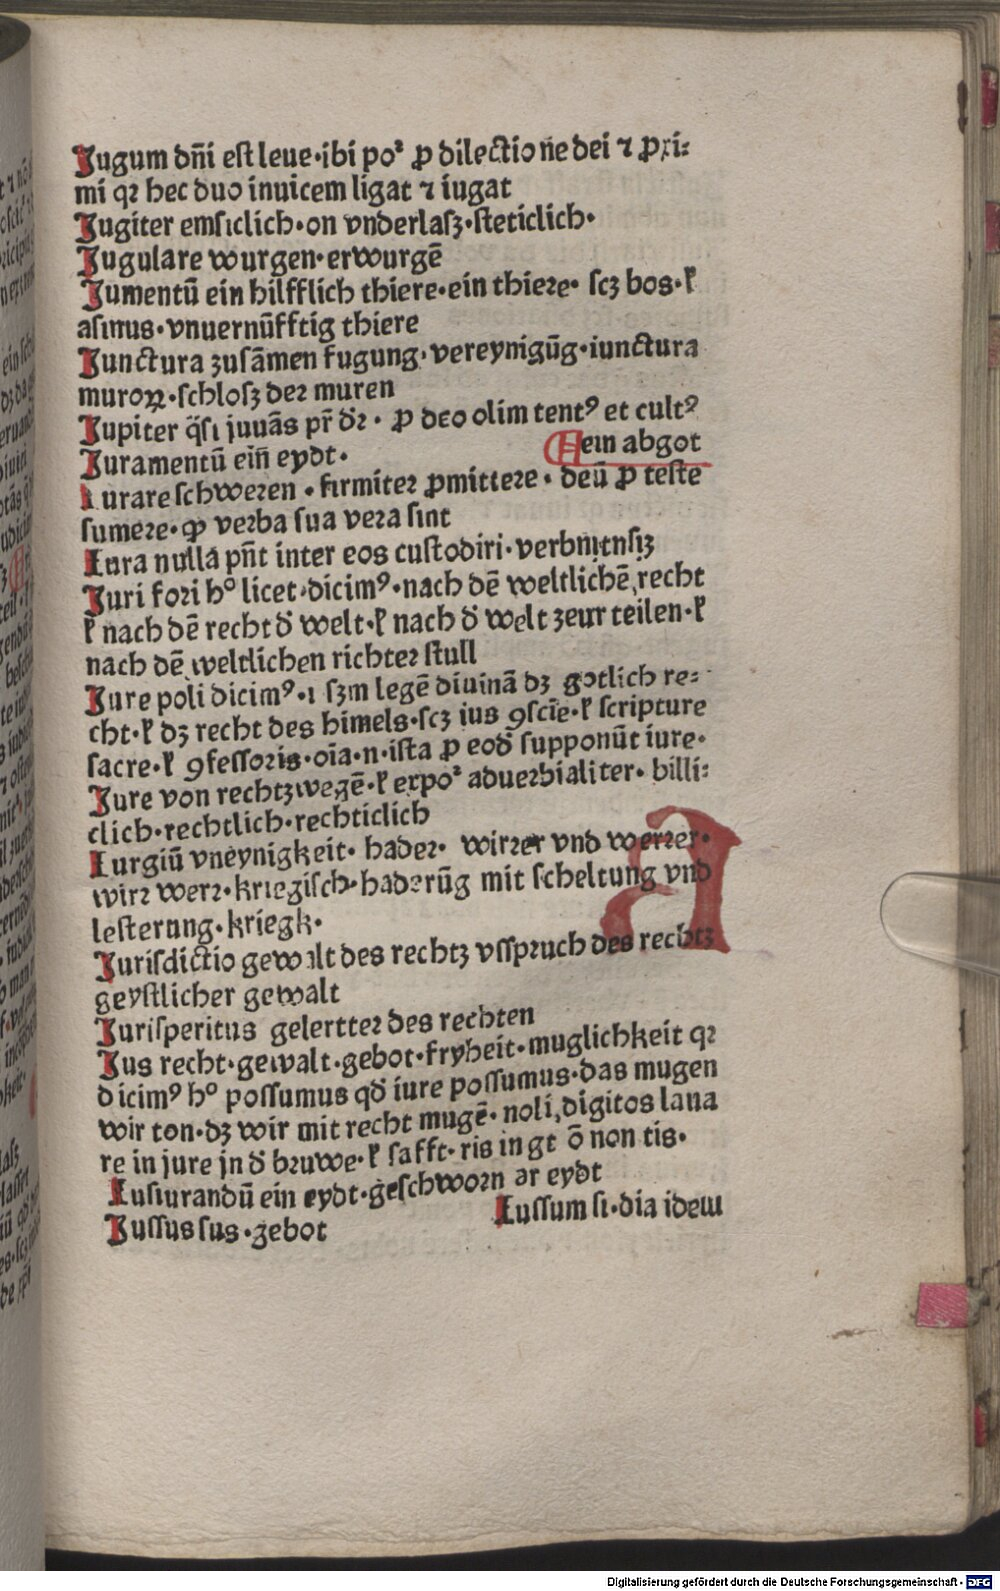 Jugum dñi est leue·ibi poꝰ ꝓ dilectione dei ⁊ ꝓxi-
mi qꝛ hec duo inuicem ligat ⁊ iugat
Jugiter emsiclich·on vnderlasz·steticlich·
Jugulare wurgen·erwurgē
Jumentū ein hilfflich thiere·ein thiere· scꝫ bos·ł
asinus·vnuernūfftig thiere
Junctura zusāmen fugung·vereynigūg·iunctura
muroꝝ·schlosz der muren
Jupiter q̈si juuās pr̄ dꝛ· ꝓ deo olim tentꝰ et cultꝰ
ein abgot
Juramentū ein̄ eydt·
Iurare schweren·firmiter ꝓmittere·deū ꝓ teste
sumere·ꝙ verba sua vera sint
Iura nulla pn̄t inter eos custodiri·verbnitnsiz
Juri fori hº licet·dicimꝰ·nach dē weltlichē recht
ł nach dē recht d̄ welt·ł nach d̄ welt zeur teilen·ł
nach dē weltlichen richter stull
Jure poli dicimꝰ·i sꝫm legē diuinā dꝫ gotlich re-
cht·ł dꝫ recht des himels·scꝫ ius ꝯscīe·ł scripture
sacre·ł ꝯfessoris·oīa·n·ista ꝓ eod̄ supponūt iure·
Jure von rechtzwegē·ł expoꝰ aduerbialiter· billi-
clich·rechtlich·rechticlich
Iurgiū vneynigkeit· hader· wirrer vnd werrer·
wirr werr·kriegisch·haderūg mit scheltung vnd
lesterung·kriegk·
Jurisdictio gewalt des rechtz vsspruch des rechtz
geystlicher gewalt
Jurisperitus gelertter des rechten
Jus recht·gewalt·gebot·fryheit·muglichkeit qꝛ
dicimꝰ hº possumus qd̄ iure possumus·das mugen
wir ton·dꝫ wir mit recht mugē· noli digitos laua
re in jure jn d̄ bruwe·ł safft·ris in gt ō non tis·
Iusiurandū ein eydt·geschworn ar eydt
Iussum si·dia idew
Jussus sus·gebot
Digitalisierung gefördert durch die Deutsche Forschungsgemeinschaft - DFG